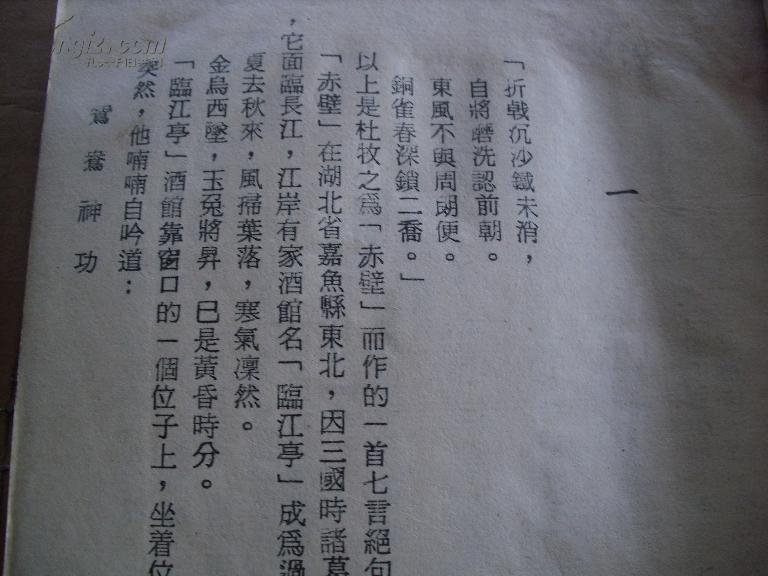 一
「折戟沉沙鐵未消，
自將磨洗認前朝。
東風不與周郎便。
銅雀春深鎖二喬。」
以上是杜牧之爲「赤壁」而作的一首七言絕句
「赤壁」在湖北省嘉魚縣東北，因三國時諸葛
，它面臨長江，江岸有家酒館名「臨江亭」成爲過
夏去秋來，風掃葉落，寒氣凜然。
金烏西墜，玉兔將昇，已是黃昏時分。
「臨江亭」酒館靠窗口的一個位子上，坐着位
突然，他喃喃自吟道：
鴛鴦神功